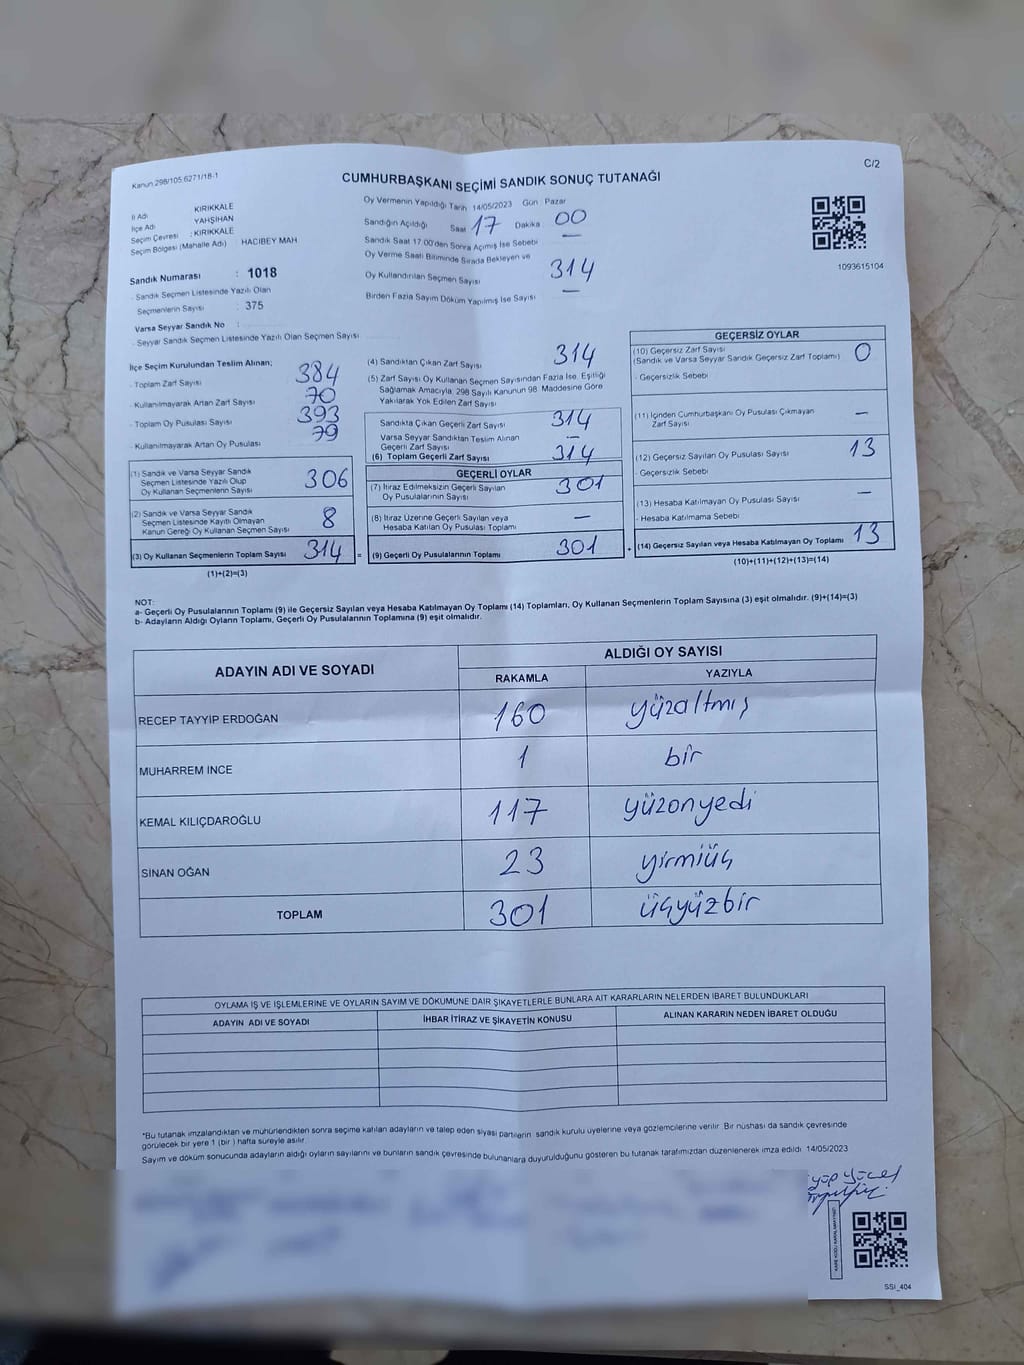 Kanun:298/105:6271/18-1
C/2
CUMHURBAŞKANI SEÇİMİ SANDIK SONUÇ TUTANAĞI
İl Adı KIRIKKALE
İlçe Adı YAHŞİHAN
Seçim Çevresi : KIRIKKALE
Seçim Bölgesi (Mahalle Adı) HACIBEY MAH
Sandık Numarası : 1018
- Sandık Seçmen Listesinde Yazılı Olan
Seçmenlerin Sayısı : 375
Varsa Seyyar Sandık No :
- Seyyar Sandık Seçmen Listesinde Yazılı Olan Seçmen Sayısı
Oy Vermenin Yapıldığı Tarih 14/05/2023 Gün Pazar
Sandığın Açıldığı Saat 17 Dakika 00
Sandık Saat 17.00'den Sonra Açılmış İse Sebebi —
Oy Verme Saati Bitiminde Sırada Bekleyen ve
Oy Kullandırılan Seçmen Sayısı 314
Birden Fazla Sayım Döküm Yapılmış İse Sayısı —
1093615104
İlçe Seçim Kurulundan Teslim Alınan;
- Toplam Zarf Sayısı 384
- Kullanılmayarak Artan Zarf Sayısı 70
- Toplam Oy Pusulası Sayısı 393
- Kullanılmayarak Artan Oy Pusulası 79
(1) Sandık ve Varsa Seyyar Sandık
Seçmen Listesinde Yazılı Olup
Oy Kullanan Seçmenlerin Sayısı 306
(2) Sandık ve Varsa Seyyar Sandık
Seçmen Listesinde Kayıtlı Olmayan
Kanun Gereği Oy Kullanan Seçmen Sayısı 8
(3) Oy Kullanan Seçmenlerin Toplam Sayısı 314 =
(1)+(2)=(3)
(4) Sandıktan Çıkan Zarf Sayısı 314
(5) Zarf Sayısı Oy Kullanan Seçmen Sayısından Fazla İse, Eşitliği
Sağlamak Amacıyla, 298 Sayılı Kanunun 98. Maddesine Göre
Yakılarak Yok Edilen Zarf Sayısı
Sandıkta Çıkan Geçerli Zarf Sayısı 314
Varsa Seyyar Sandıktan Teslim Alınan
Geçerli Zarf Sayısı —
(6) Toplam Geçerli Zarf Sayısı 314
GEÇERLİ OYLAR
(7) İtiraz Edilmeksizin Geçerli Sayılan
Oy Pusulalarının Sayısı 301
(8) İtiraz Üzerine Geçerli Sayılan veya
Hesaba Katılan Oy Pusulası Toplamı —
(9) Geçerli Oy Pusulalarının Toplamı 301 +
GEÇERSİZ OYLAR
(10) Geçersiz Zarf Sayısı
(Sandık ve Varsa Seyyar Sandık Geçersiz Zarf Toplamı) 0
- Geçersizlik Sebebi
(11) İçinden Cumhurbaşkanı Oy Pusulası Çıkmayan
Zarf Sayısı —
(12) Geçersiz Sayılan Oy Pusulası Sayısı 13
- Geçersizlik Sebebi
(13) Hesaba Katılmayan Oy Pusulası Sayısı —
- Hesaba Katılmama Sebebi
(14) Geçersiz Sayılan veya Hesaba Katılmayan Oy Toplamı 13
(10)+(11)+(12)+(13)=(14)
NOT:
a- Geçerli Oy Pusulalarının Toplamı (9) ile Geçersiz Sayılan veya Hesaba Katılmayan Oy Toplamı (14) Toplamları, Oy Kullanan Seçmenlerin Toplam Sayısına (3) eşit olmalıdır. (9)+(14)=(3)
b- Adayların Aldığı Oyların Toplamı, Geçerli Oy Pusulalarının Toplamına (9) eşit olmalıdır.
ADAYIN ADI VE SOYADI
ALDIĞI OY SAYISI
RAKAMLA YAZIYLA
RECEP TAYYİP ERDOĞAN 160 yüzaltmış
MUHARREM İNCE 1 bir
KEMAL KILIÇDAROĞLU 117 yüzonyedi
SİNAN OĞAN 23 yirmiüç
TOPLAM 301 üçyüzbir
OYLAMA İŞ VE İŞLEMLERİNE VE OYLARIN SAYIM VE DÖKÜMÜNE DAİR ŞİKAYETLERLE BUNLARA AİT KARARLARIN NELERDEN İBARET BULUNDUKLARI
ADAYIN ADI VE SOYADI İHBAR İTİRAZ VE ŞİKAYETİN KONUSU ALINAN KARARIN NEDEN İBARET OLDUĞU
*Bu tutanak imzalandıktan ve mühürlendikten sonra seçime katılan adayların ve talep eden siyasi partilerin sandık kurulu üyelerine veya gözlemcilerine verilir. Bir nüshası da sandık çevresinde
görülecek bir yere 1 (bir) hafta süreyle asılır.
Sayım ve döküm sonucunda adayların aldığı oyların sayılarını ve bunların sandık çevresinde bulunanlara duyurulduğunu gösteren bu tutanak tarafımızdan düzenlenerek imza edildi. 14/05/2023
SSI_404